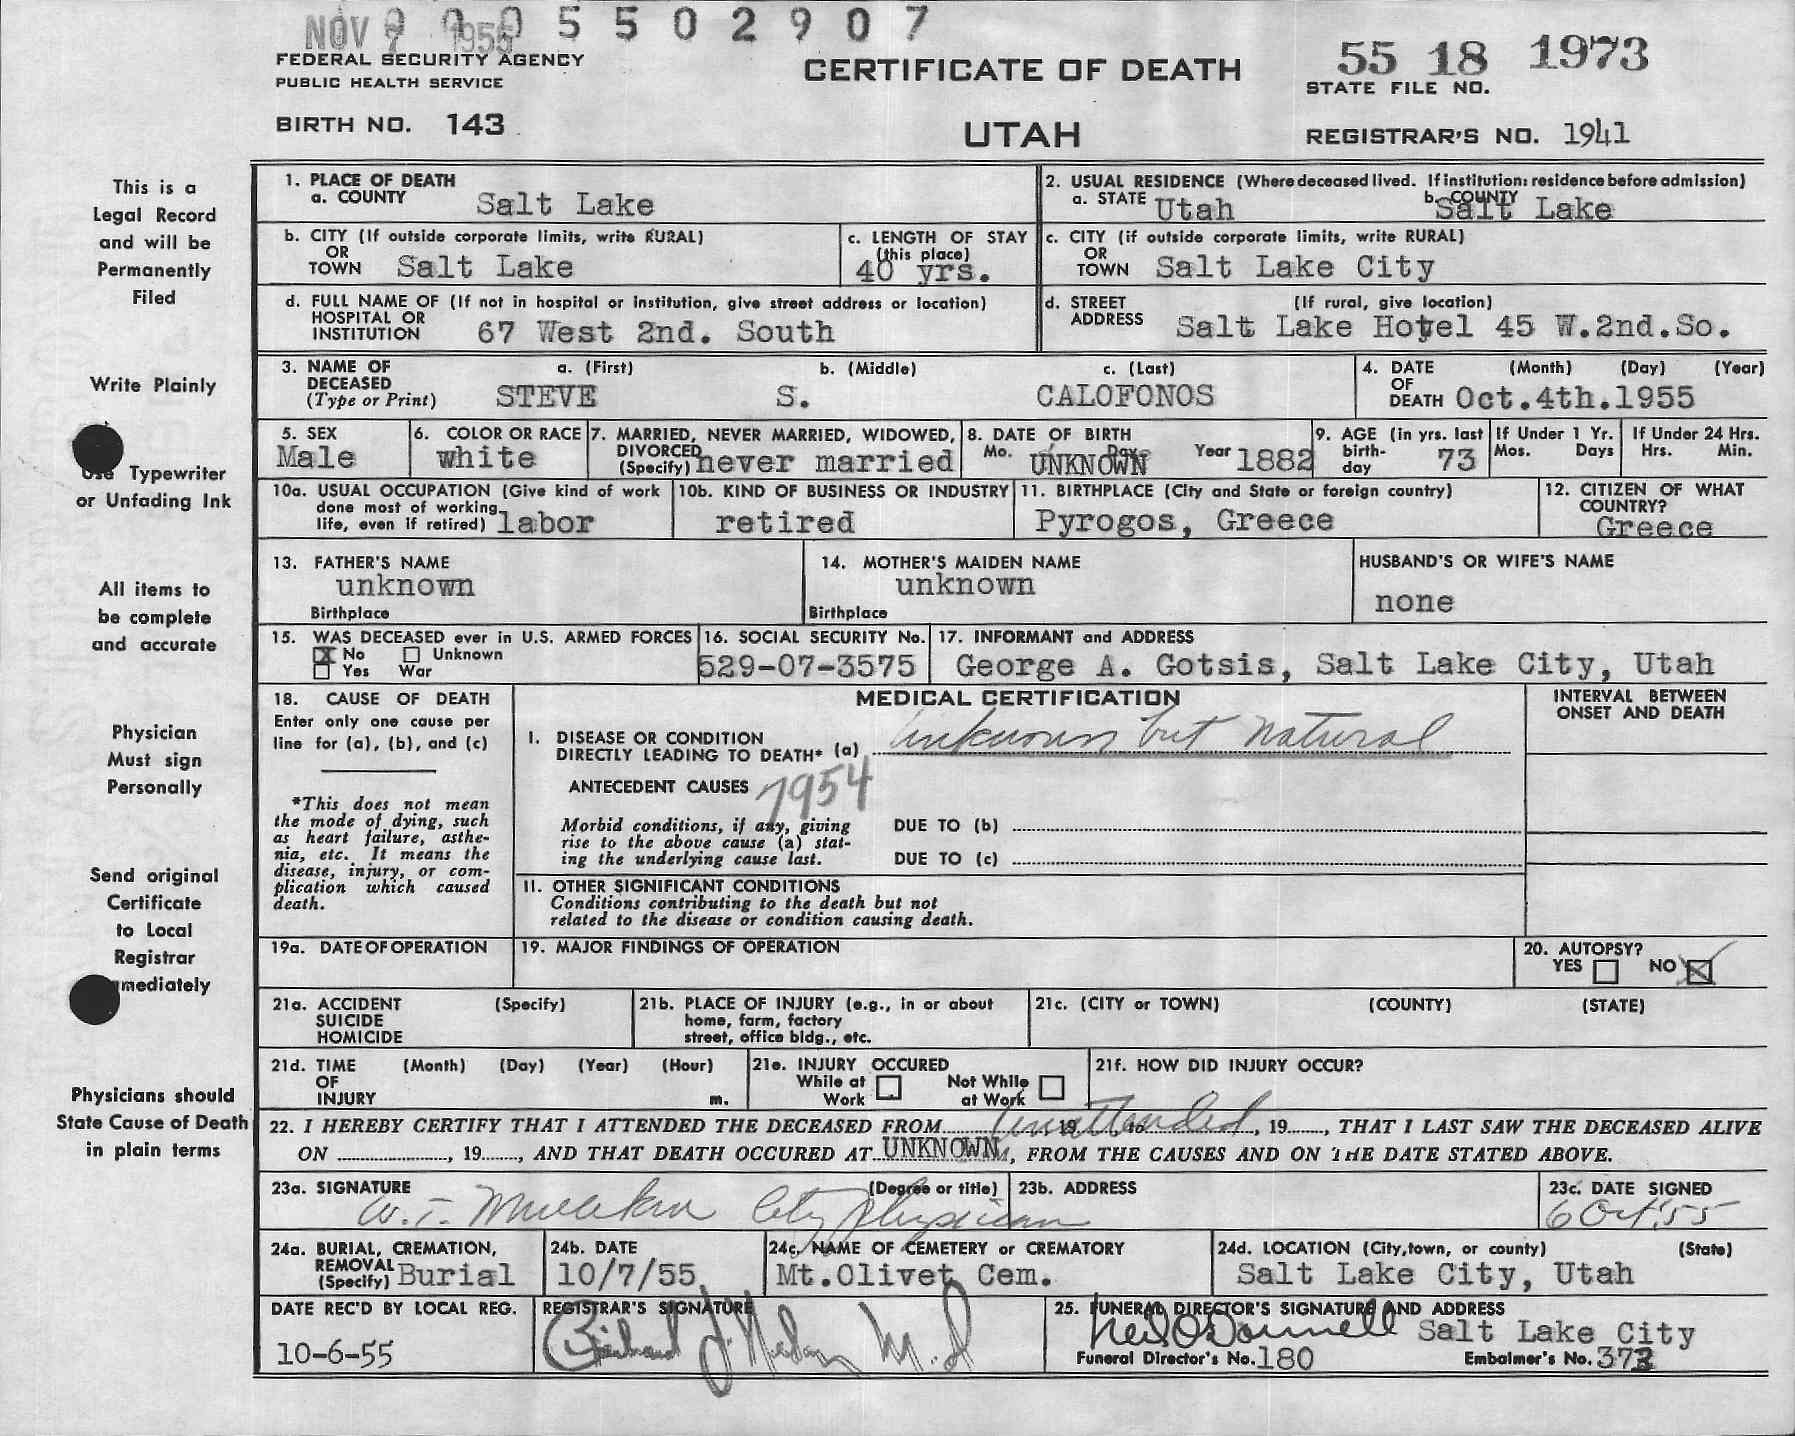 NOV 7 1955
0005502907
FEDERAL SECURITY AGENCY
PUBLIC HEALTH SERVICE
BIRTH NO. 143
CERTIFICATE OF DEATH
UTAH
55 18 1973
STATE FILE NO.
REGISTRAR'S NO. 1941
This is a
Legal Record
and will be
Permanently
Filed
Write Plainly
Use Typewriter
or Unfading Ink
All items to
be complete
and accurate
Physician
Must sign
Personally
Send original
Certificate
to Local
Registrar
mmediately
Physicians should
State Cause of Death
in plain terms
1. PLACE OF DEATH
a. COUNTY Salt Lake
2. USUAL RESIDENCE (Where deceased lived. If institution: residence before admission)
a. STATE Utah b. COUNTY Salt Lake
b. CITY (If outside corporate limits, write RURAL)
OR
TOWN Salt Lake
c. LENGTH OF STAY
(this place)
40 yrs.
c. CITY (if outside corporate limits, write RURAL)
OR
TOWN Salt Lake City
d. FULL NAME OF (If not in hospital or institution, give street address or location)
HOSPITAL OR
INSTITUTION 67 West 2nd. South
d. STREET (If rural, give location)
ADDRESS Salt Lake Hotel 45 W.2nd.So.
3. NAME OF a. (First) b. (Middle) c. (Last)
DECEASED
(Type or Print) STEVE S. CALOFONOS
4. DATE (Month) (Day) (Year)
OF
DEATH Oct.4th.1955
5. SEX
Male
6. COLOR OR RACE
white
7. MARRIED, NEVER MARRIED, WIDOWED,
DIVORCED
(Specify) never married
8. DATE OF BIRTH
Mo. UNKNOWN Day Year 1882
9. AGE (in yrs. last
birth-
day 73
If Under 1 Yr.
Mos. Days
If Under 24 Hrs.
Hrs. Min.
10a. USUAL OCCUPATION (Give kind of work
done most of working
life, even if retired) labor
10b. KIND OF BUSINESS OR INDUSTRY
retired
11. BIRTHPLACE (City and State or foreign country)
Pyrogos, Greece
12. CITIZEN OF WHAT
COUNTRY?
Greece
13. FATHER'S NAME
unknown
Birthplace
14. MOTHER'S MAIDEN NAME
unknown
Birthplace
HUSBAND'S OR WIFE'S NAME
none
15. WAS DECEASED ever in U.S. ARMED FORCES
X No Unknown
Yes War
16. SOCIAL SECURITY No.
529-07-3575
17. INFORMANT and ADDRESS
George A. Gotsis, Salt Lake City, Utah
18. CAUSE OF DEATH
Enter only one cause per
line for (a), (b), and (c)
*This does not mean
the mode of dying, such
as heart failure, asthe-
nia, etc. It means the
disease, injury, or com-
plication which caused
death.
MEDICAL CERTIFICATION
I. DISEASE OR CONDITION
DIRECTLY LEADING TO DEATH* (a) unknown but natural
ANTECEDENT CAUSES 7954
Morbid conditions, if any, giving
rise to the above cause (a) stat-
ing the underlying cause last.
DUE TO (b)
DUE TO (c)
II. OTHER SIGNIFICANT CONDITIONS
Conditions contributing to the death but not
related to the disease or condition causing death.
INTERVAL BETWEEN
ONSET AND DEATH
19a. DATE OF OPERATION
19. MAJOR FINDINGS OF OPERATION
20. AUTOPSY?
YES NO X
21a. ACCIDENT (Specify)
SUICIDE
HOMICIDE
21b. PLACE OF INJURY (e.g., in or about
home, farm, factory
street, office bldg., etc.
21c. (CITY or TOWN) (COUNTY) (STATE)
21d. TIME (Month) (Day) (Year) (Hour)
OF
INJURY m.
21e. INJURY OCCURED
While at Work
Not While at Work
21f. HOW DID INJURY OCCUR?
22. I HEREBY CERTIFY THAT I ATTENDED THE DECEASED FROM unattended, 19, to, 19, THAT I LAST SAW THE DECEASED ALIVE
ON , 19, AND THAT DEATH OCCURED AT UNKNOWN M, FROM THE CAUSES AND ON THE DATE STATED ABOVE.
23a. SIGNATURE (Degree or title)
W. T. City Physician
23b. ADDRESS
23c. DATE SIGNED
6 Oct 55
24a. BURIAL, CREMATION,
REMOVAL
(Specify) Burial
24b. DATE
10/7/55
24c. NAME OF CEMETERY or CREMATORY
Mt.Olivet Cem.
24d. LOCATION (City,town, or county) (State)
Salt Lake City, Utah
DATE REC'D BY LOCAL REG.
10-6-55
REGISTRAR'S SIGNATURE
M.D
25. FUNERAL DIRECTOR'S SIGNATURE AND ADDRESS
Neil O'Donnell Salt Lake City
Funeral Director's No. 180 Embalmer's No. 373